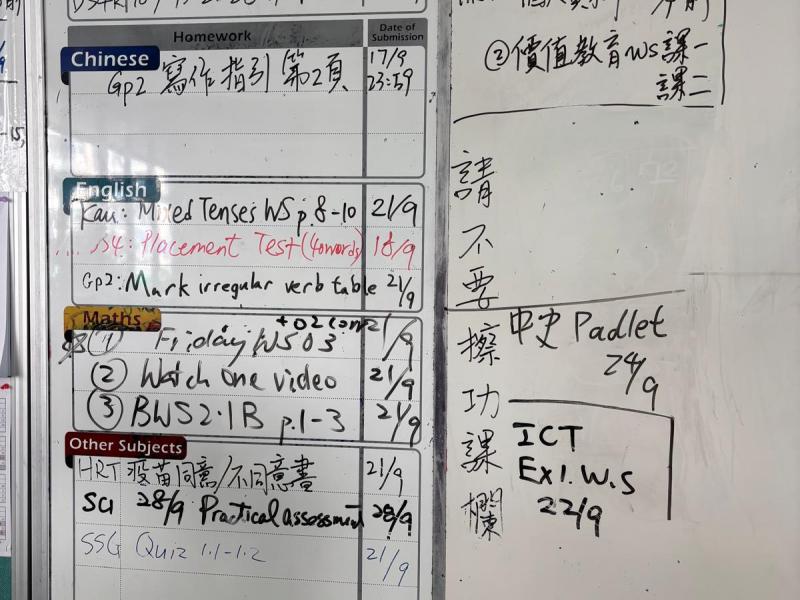 Homework
Date of Submission
Chinese
Gp2 寫作指引 第2頁 17/9 23:59
English
Kau: Mixed Tenses WS p.8-10 21/9
S4: Placement Test (40words) 18/9
Gp2: Mark irregular verb table 21/9
Maths
① Friday WS03 21/9
② Watch one video 21/9
③ BWS2.1B p.1-3 21/9
Other Subjects
HRT 疫苗同意/不同意書 21/9
Sci 28/9 Practical assessment 28/9
SSG Quiz 1.1-1.2 21/9
②價值教育WS 課一
課二
請不要擦功課欄
中史 Padlet
24/9
ICT
Ex1. W.S
22/9